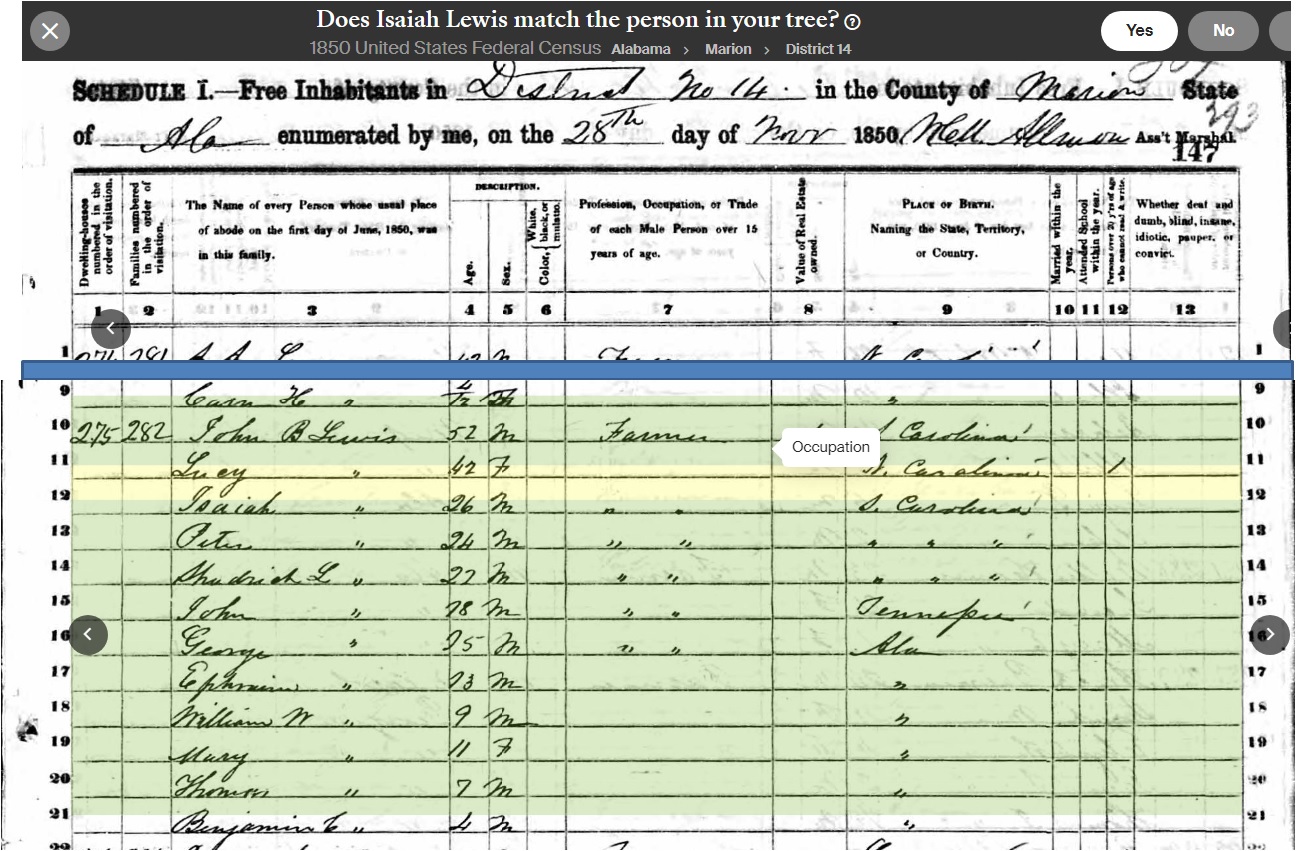 Does Isaiah Lewis match the person in your tree? ?
1850 United States Federal Census Alabama > Marion > District 14
Yes No
SCHEDULE I.—Free Inhabitants in District No 14. in the County of Marion State
of Ala enumerated by me, on the 28th day of Novr 1850. Ass't Marshal
393
147
Dwelling-houses numbered in the order of visitation.
Families numbered in the order of visitation.
The Name of every Person whose usual place of abode on the first day of June, 1850, was in this family.
DESCRIPTION.
Age.
Sex.
Color, { White, black, or mulatto.
Profession, Occupation, or Trade of each Male Person over 15 years of age.
Value of Real Estate owned.
PLACE OF BIRTH. Naming the State, Territory, or Country.
Married within the year.
Attended School within the year.
Persons over 20 y'rs of age who cannot read & write.
Whether deaf and dumb, blind, insane, idiotic, pauper, or convict.
1 2 3 4 5 6 7 8 9 10 11 12 13
1 1
9 H " 4/12 " 9
10 275 282 John B Lewis 52 M Farmer S. Carolina 10
Occupation
11 Lucy " 42 F Carolina 1 11
12 Isaiah " 26 M " " S. Carolina 12
13 Peter " 24 M " " " " " 13
14 Shadrich L " 22 M " " " " " 14
15 John " 18 M " " Tennessee 15
16 George " 15 M " " Ala 16
17 Ephraim " 13 M " 17
18 William W " 9 M " 18
19 Mary " 11 F " 19
20 Thomas " 7 M " 20
21 Benjamin " 4 M " 21
22